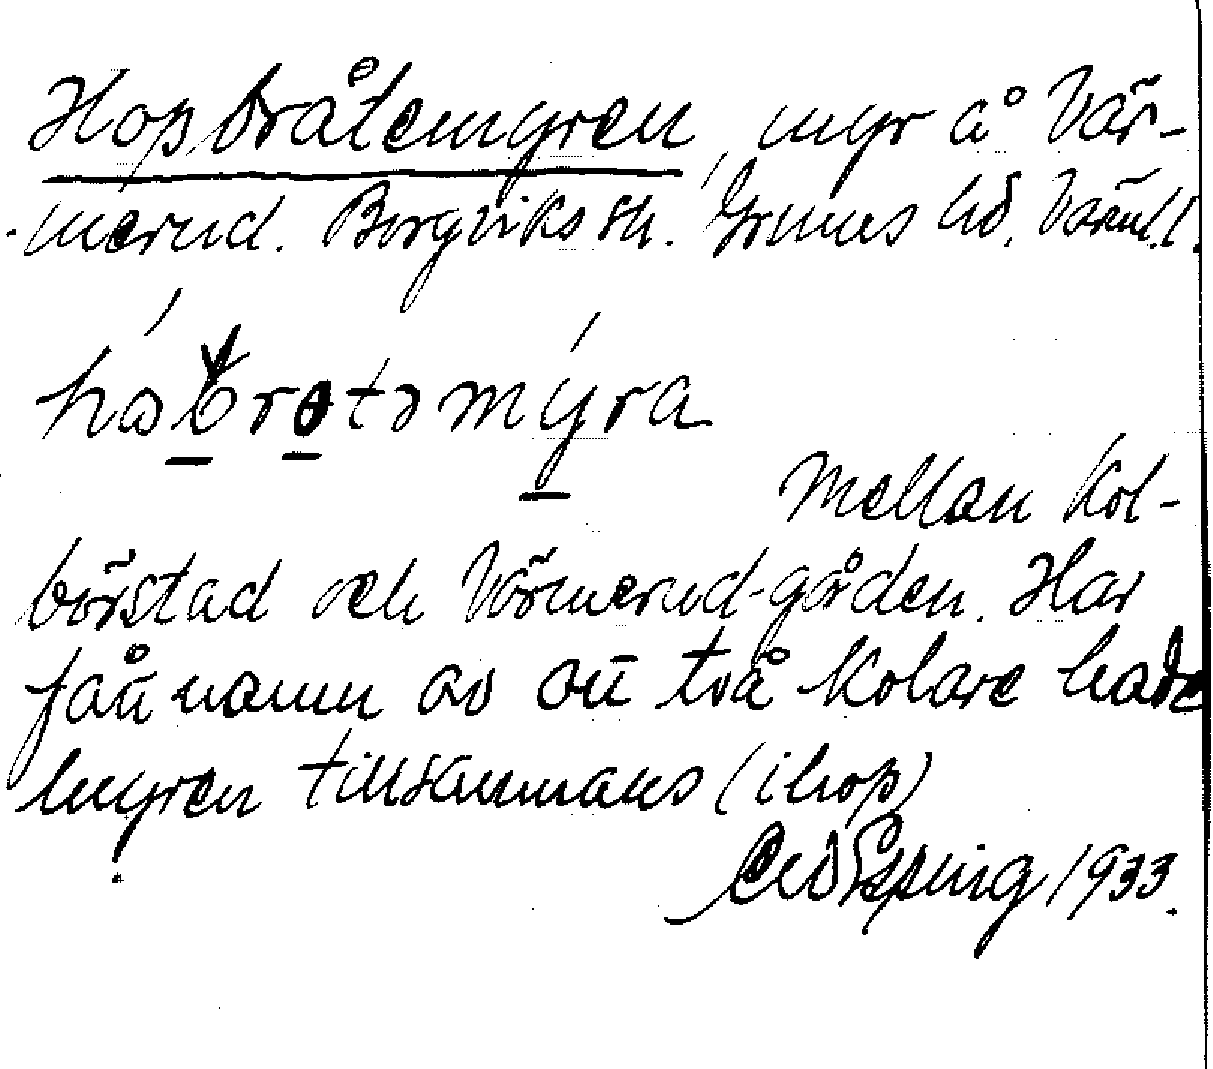 Hopbråtemyren, myr å Vär-
merud. Borgviks sn. Grums hd. Värml.l.
mellan Kol-
börstad och Värmerud-gården. Har
fått namn av att två kolare hade
myren tillsammans (ihop)
1933.